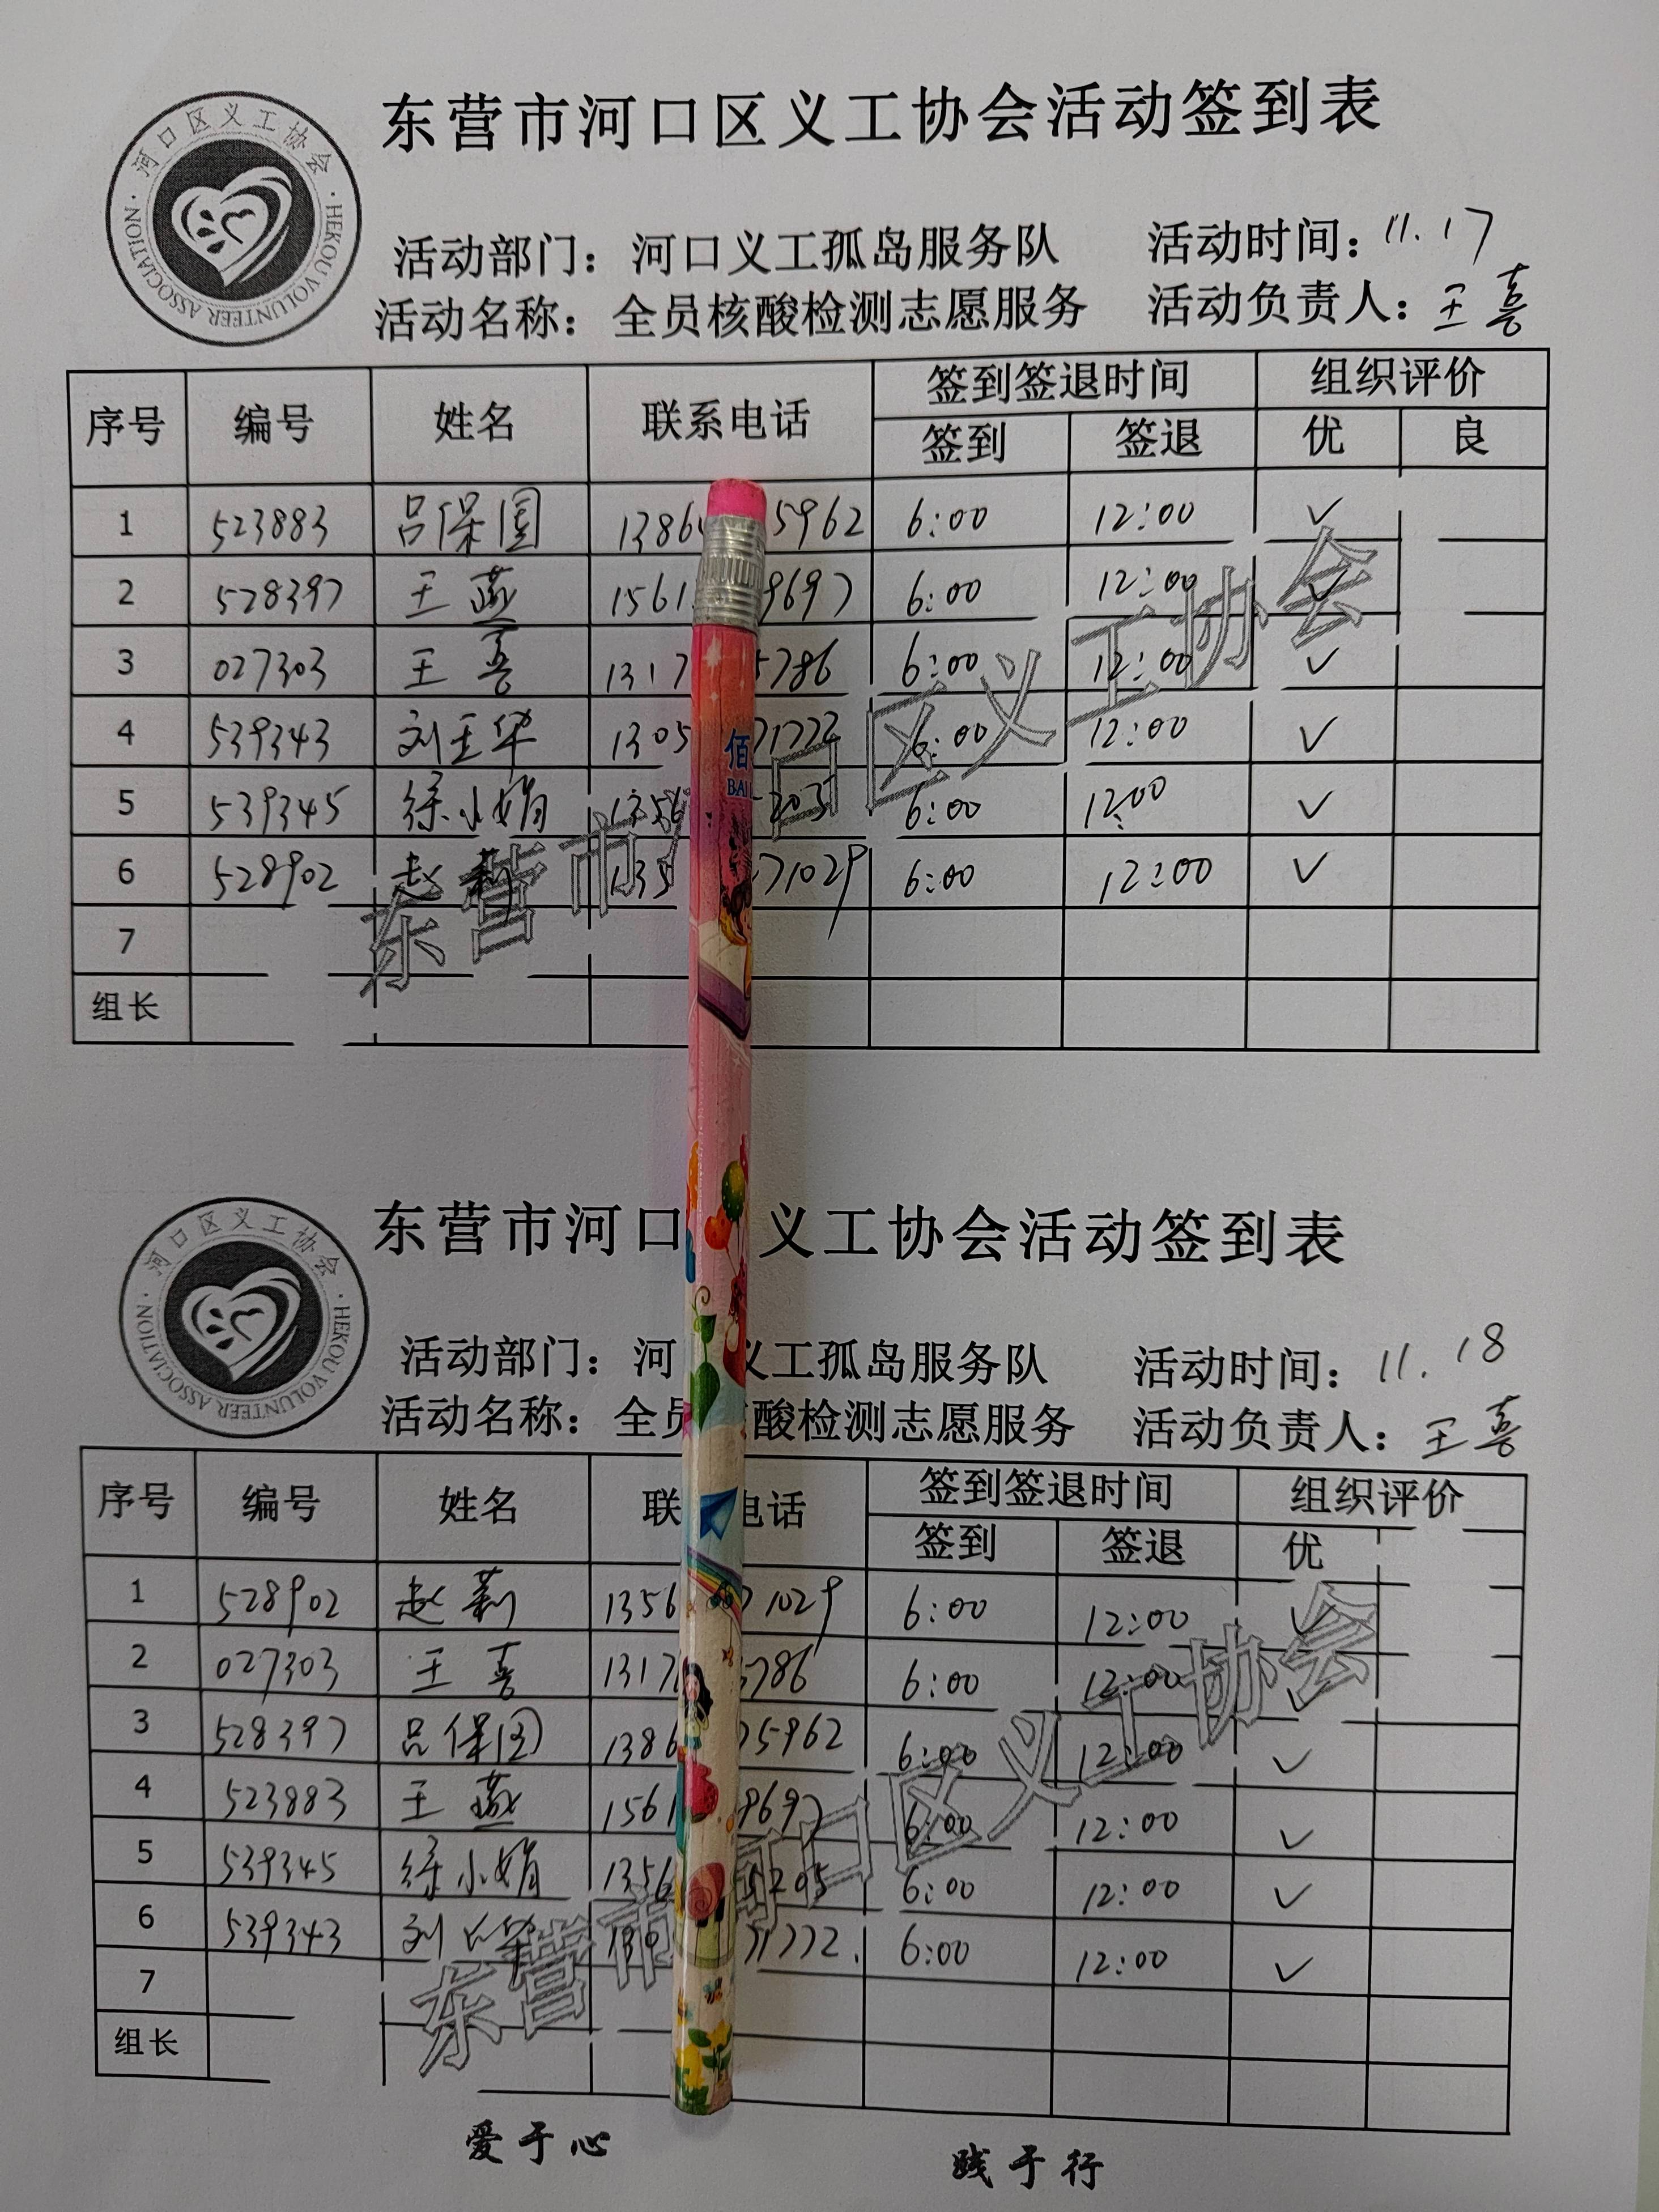 东营市河口区义工协会活动签到表
河口区义工协会
HEKOU VOLUNTEER ASSOCIATION
活动部门：河口义工孤岛服务队 活动时间：11.17
活动名称：全员核酸检测志愿服务 活动负责人：王喜
序号 编号 姓名 联系电话 签到签退时间 组织评价
签到 签退 优 良
1 523883 吕保国 1386 5962 6:00 12:00 ✓
2 528397 王燕 1561 9697 6:00 12:00 ✓
3 027303 王喜 1317 5786 6:00 12:00 ✓
4 539343 刘玉华 1305 71772 6:00 12:00 ✓
5 539345 徐小娟 1356 6:00 12:00 ✓
6 528902 赵莉 135 71029 6:00 12:00 ✓
7
组长
东营市 口区义工协会
东营市河口 义工协会活动签到表
河口区义工协会
HEKOU VOLUNTEER ASSOCIATION
活动部门：河 义工孤岛服务队 活动时间：11.18
活动名称：全员核酸检测志愿服务 活动负责人：王喜
序号 编号 姓名 联 电话 签到签退时间 组织评价
签到 签退 优
1 528902 赵莉 1356 71029 6:00 12:00 ✓
2 027303 王喜 1317 5786 6:00 12:00 ✓
3 528397 吕保国 1386 75962 6:00 12:00 ✓
4 523883 王燕 1561 9697 6:00 12:00 ✓
5 539345 徐小娟 1356 5205 6:00 12:00 ✓
6 539343 刘 华 130 71772 6:00 12:00 ✓
7
组长
东营市河口区义工协会
爱于心 践于行